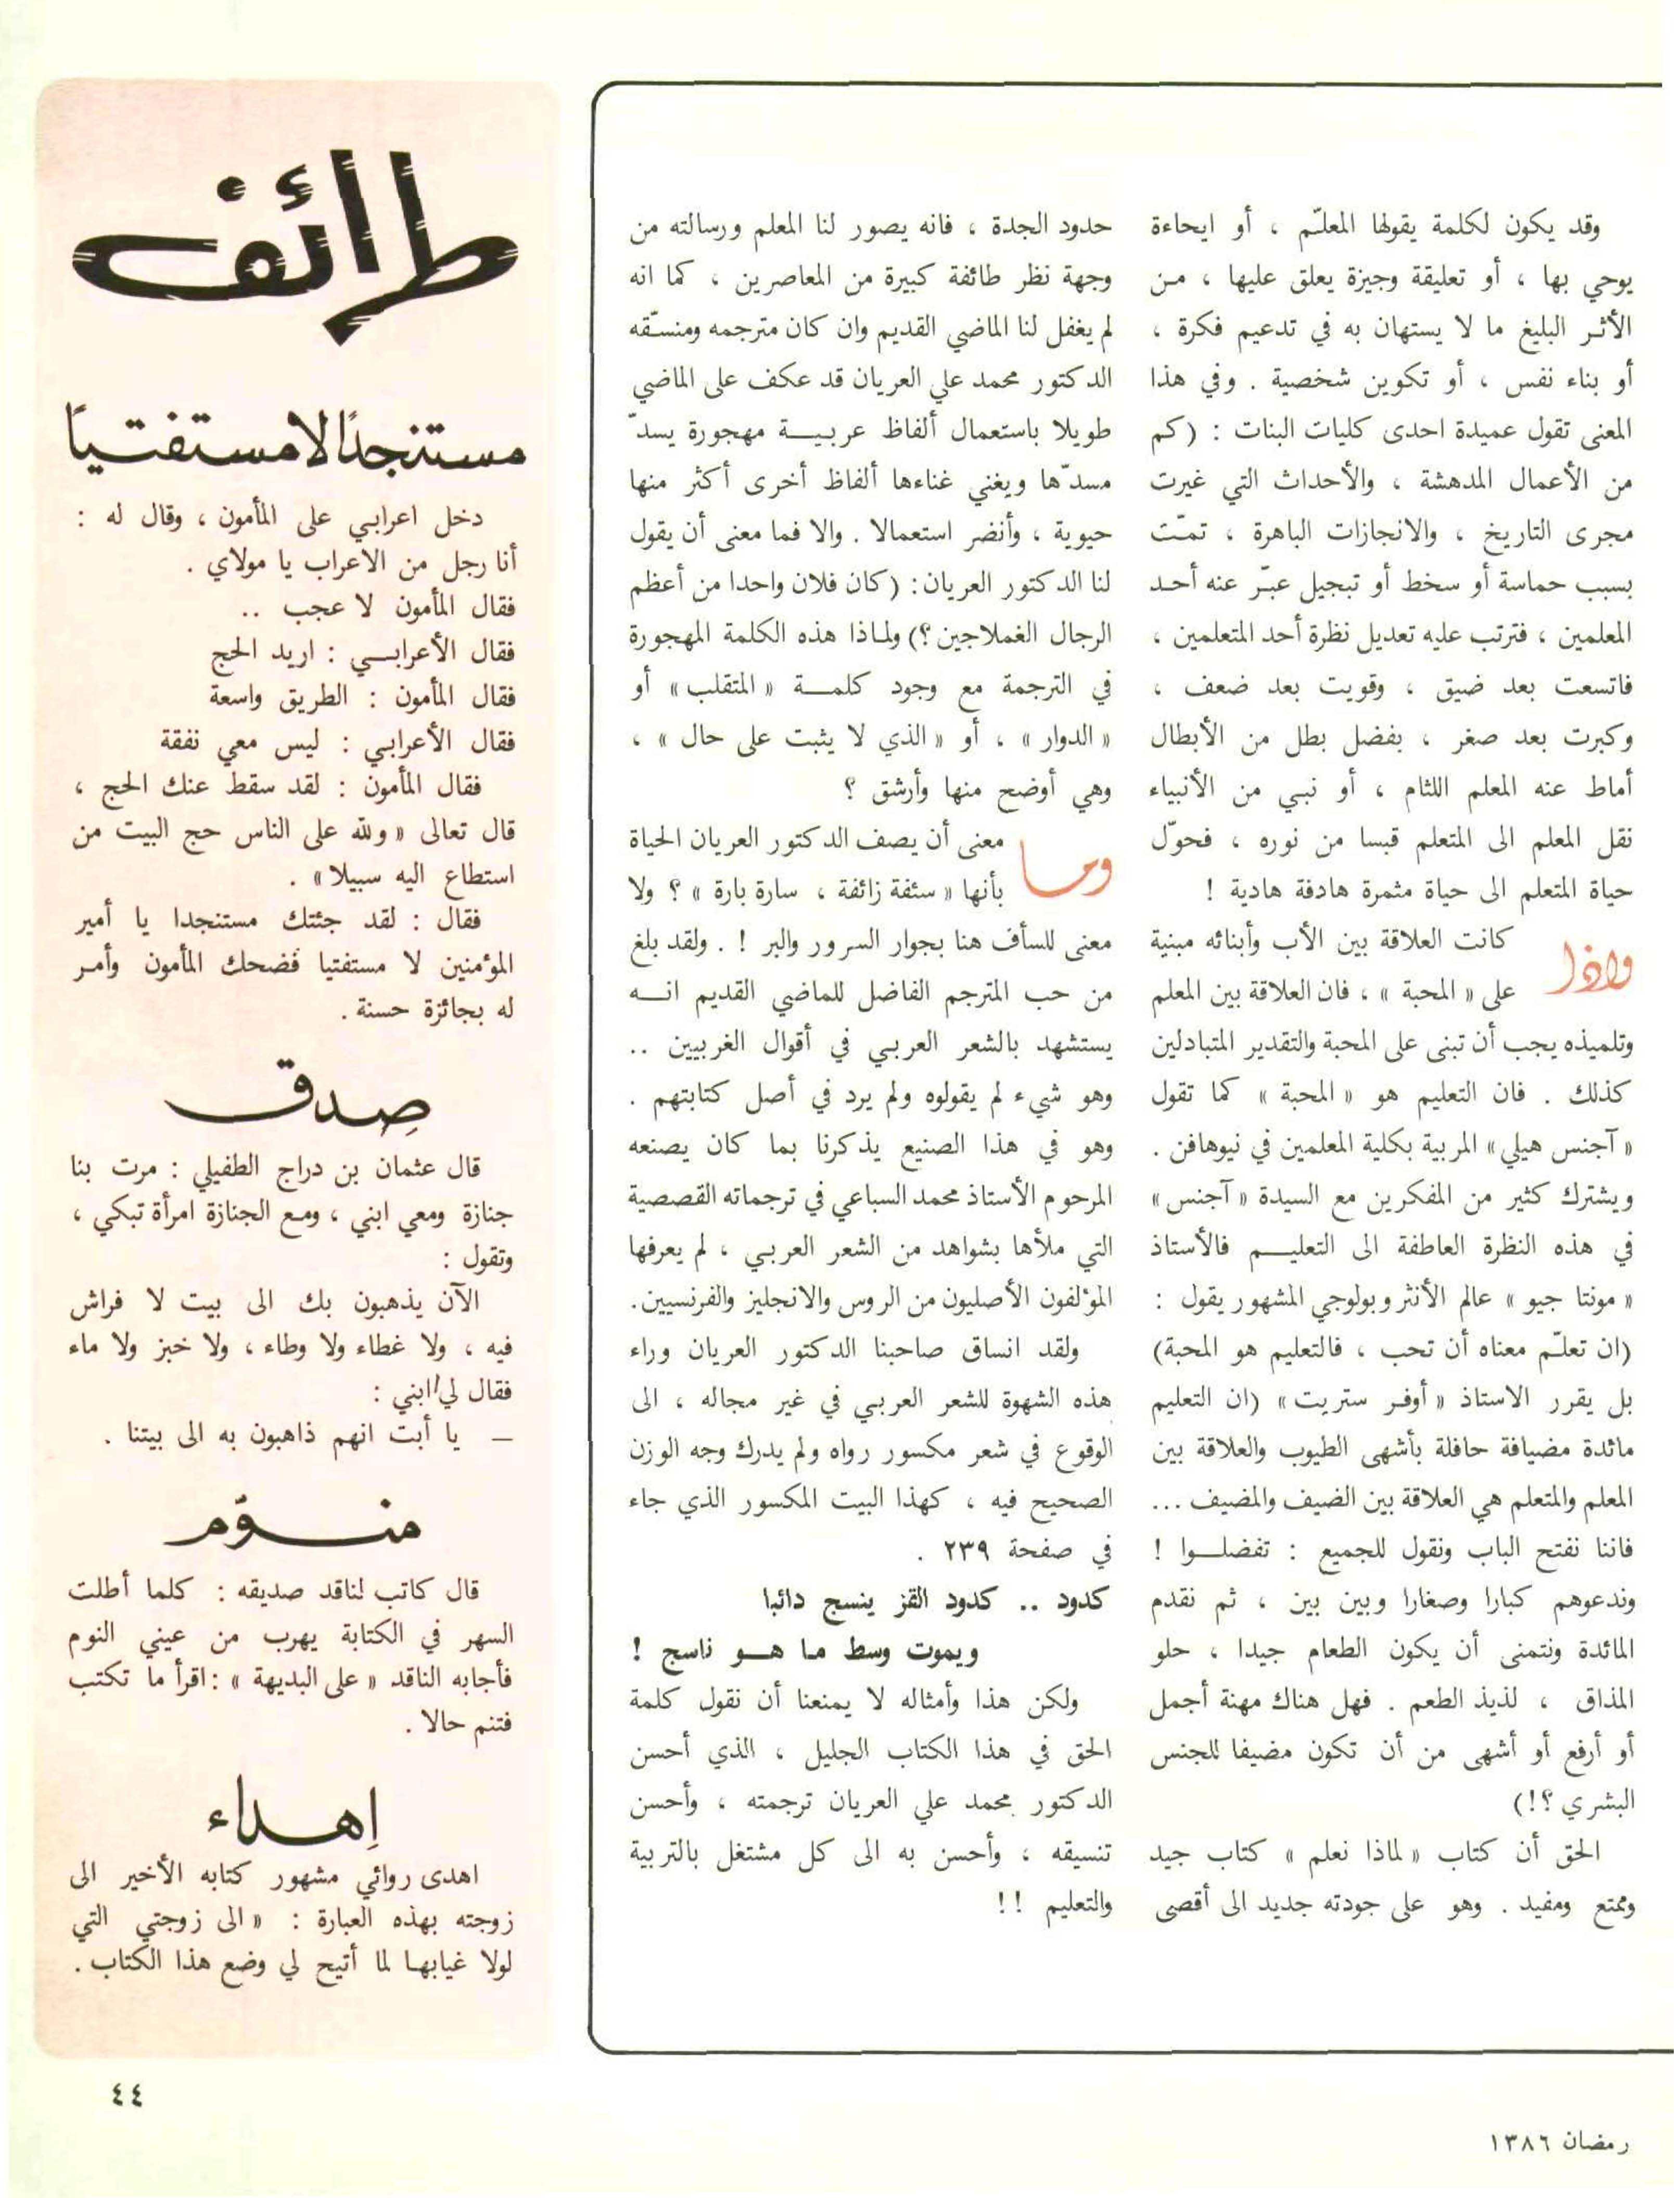 وقد يكون لكلمة يقولها المعلّم ، أو ايحاءة
يوحي بها ، أو تعليقة وجيزة يعلق عليها ، من
الأثر البليغ ما لا يستهان به في تدعيم فكرة ،
أو بناء نفس ، أو تكوين شخصية . وفي هذا
المعنى تقول عميدة احدى كليات البنات : (كم
من الأعمال المدهشة ، والأحداث التي غيرت
مجرى التاريخ ، والانجازات الباهرة ، تمّت
بسبب حماسة أو سخط أو تبجيل عبّر عنه أحد
المعلمين ، فترتب عليه تعديل نظرة أحد المتعلمين ،
فاتسعت بعد ضيق ، وقويت بعد ضعف ،
وكبرت بعد صغر ، بفضل بطل من الأبطال
أماط عنه المعلم اللثام ، أو نبي من الأنبياء
نقل المعلم الى المتعلم قبسا من نوره ، فحوّل
حياة المتعلم الى حياة مثمرة هادفة هادية !
واذا كانت العلاقة بين الأب وأبنائه مبنية
على « المحبة » ، فان العلاقة بين المعلم
وتلميذه يجب أن تبنى على المحبة والتقدير المتبادلين
كذلك . فان التعليم هو « المحبة » كما تقول
« آجنس هيلي » المربية بكلية المعلمين في نيوهافن .
ويشترك كثير من المفكرين مع السيدة « آجنس »
في هذه النظرة العاطفة الى التعليم فالأستاذ
« مونتا جيو » عالم الأنثروبولوجي المشهور يقول :
(ان تعلّم معناه أن تحب ، فالتعليم هو المحبة)
بل يقرر الاستاذ « أوفر ستريت » (ان التعليم
مائدة مضيافة حافلة بأشهى الطيوب والعلاقة بين
المعلم والمتعلم هي العلاقة بين الضيف والمضيف ...
فاننا نفتح الباب ونقول للجميع : تفضلوا !
وندعوهم كبارا وصغارا وبين بين ، ثم نقدم
المائدة ونتمنى أن يكون الطعام جيدا ، حلو
المذاق ، لذيذ الطعم . فهل هناك مهنة أجمل
أو أرفع أو أشهى من أن تكون مضيفا للجنس
البشري ؟!)
الحق أن كتاب « لماذا نعلم » كتاب جيد
وممتع ومفيد . وهو على جودته جديد الى أقصى
حدود الجدة ، فانه يصور لنا المعلم ورسالته من
وجهة نظر طائفة كبيرة من المعاصرين ، كما انه
لم يغفل لنا الماضي القديم وان كان مترجمه ومنسّقه
الدكتور محمد علي العريان قد عكف على الماضي
طويلا باستعمال ألفاظ عربية مهجورة يسدّ
مسدّها ويغني غناءها ألفاظ أخرى أكثر منها
حيوية ، وأنضر استعمالا . والا فما معنى أن يقول
لنا الدكتور العريان : (كان فلان واحدا من أعظم
الرجال الغملاجين ؟) ولماذا هذه الكلمة المهجورة
في الترجمة مع وجود كلمة « المتقلب » أو
« الدوار » ، أو « الذي لا يثبت على حال » ،
وهي أوضح منها وأرشق ؟
وما معنى أن يصف الدكتور العريان الحياة
بأنها « سئفة زائفة ، سارة بارة » ؟ ولا
معنى للسأف هنا بجوار السرور والبر ! . ولقد بلغ
من حب المترجم الفاضل للماضي القديم انه
يستشهد بالشعر العربي في أقوال الغربيين ..
وهو شيء لم يقولوه ولم يرد في أصل كتابتهم .
وهو في هذا الصنيع يذكرنا بما كان يصنعه
المرحوم الأستاذ محمد السباعي في ترجماته القصصية
التي ملأها بشواهد من الشعر العربي ، لم يعرفها
المؤلفون الأصليون من الروس والانجليز والفرنسيين.
ولقد انساق صاحبنا الدكتور العريان وراء
هذه الشهوة للشعر العربي في غير مجاله ، الى
الوقوع في شعر مكسور رواه ولم يدرك وجه الوزن
الصحيح فيه ، كهذا البيت المكسور الذي جاء
في صفحة ٢٣٩ .
كدود .. كدود القز ينسج دائبا
ويموت وسط ما هو ناسج !
ولكن هذا وأمثاله لا يمنعنا أن نقول كلمة
الحق في هذا الكتاب الجليل ، الذي أحسن
الدكتور محمد علي العريان ترجمته ، وأحسن
تنسيقه ، وأحسن به الى كل مشتغل بالتربية
والتعليم !!
طرائف
مستنجدًا لا مستفتيًا
دخل اعرابي على المأمون ، وقال له :
أنا رجل من الاعراب يا مولاي .
فقال المأمون لا عجب ..
فقال الأعرابي : اريد الحج
فقال المأمون : الطريق واسعة
فقال الأعرابي : ليس معي نفقة
فقال المأمون : لقد سقط عنك الحج ،
قال تعالى « ولله على الناس حج البيت من
استطاع اليه سبيلا » .
فقال : لقد جئتك مستنجدا يا أمير
المؤمنين لا مستفتيا فضحك المأمون وأمر
له بجائزة حسنة .
صِدق
قال عثمان بن دراج الطفيلي : مرت بنا
جنازة ومعي ابني ، ومع الجنازة امرأة تبكي ،
وتقول :
الآن يذهبون بك الى بيت لا فراش
فيه ، ولا غطاء ولا وطاء ، ولا خبز ولا ماء
فقال لي ابني :
— يا أبت انهم ذاهبون به الى بيتنا .
منوّم
قال كاتب لناقد صديقه : كلما أطلت
السهر في الكتابة يهرب من عيني النوم
فأجابه الناقد « على البديهة » : اقرأ ما تكتب
فتنم حالا .
إهداء
اهدى روائي مشهور كتابه الأخير الى
زوجته بهذه العبارة : « الى زوجتي التي
لولا غيابها لما أتيح لي وضع هذا الكتاب .
٤٤
رمضان ١٣٨٦